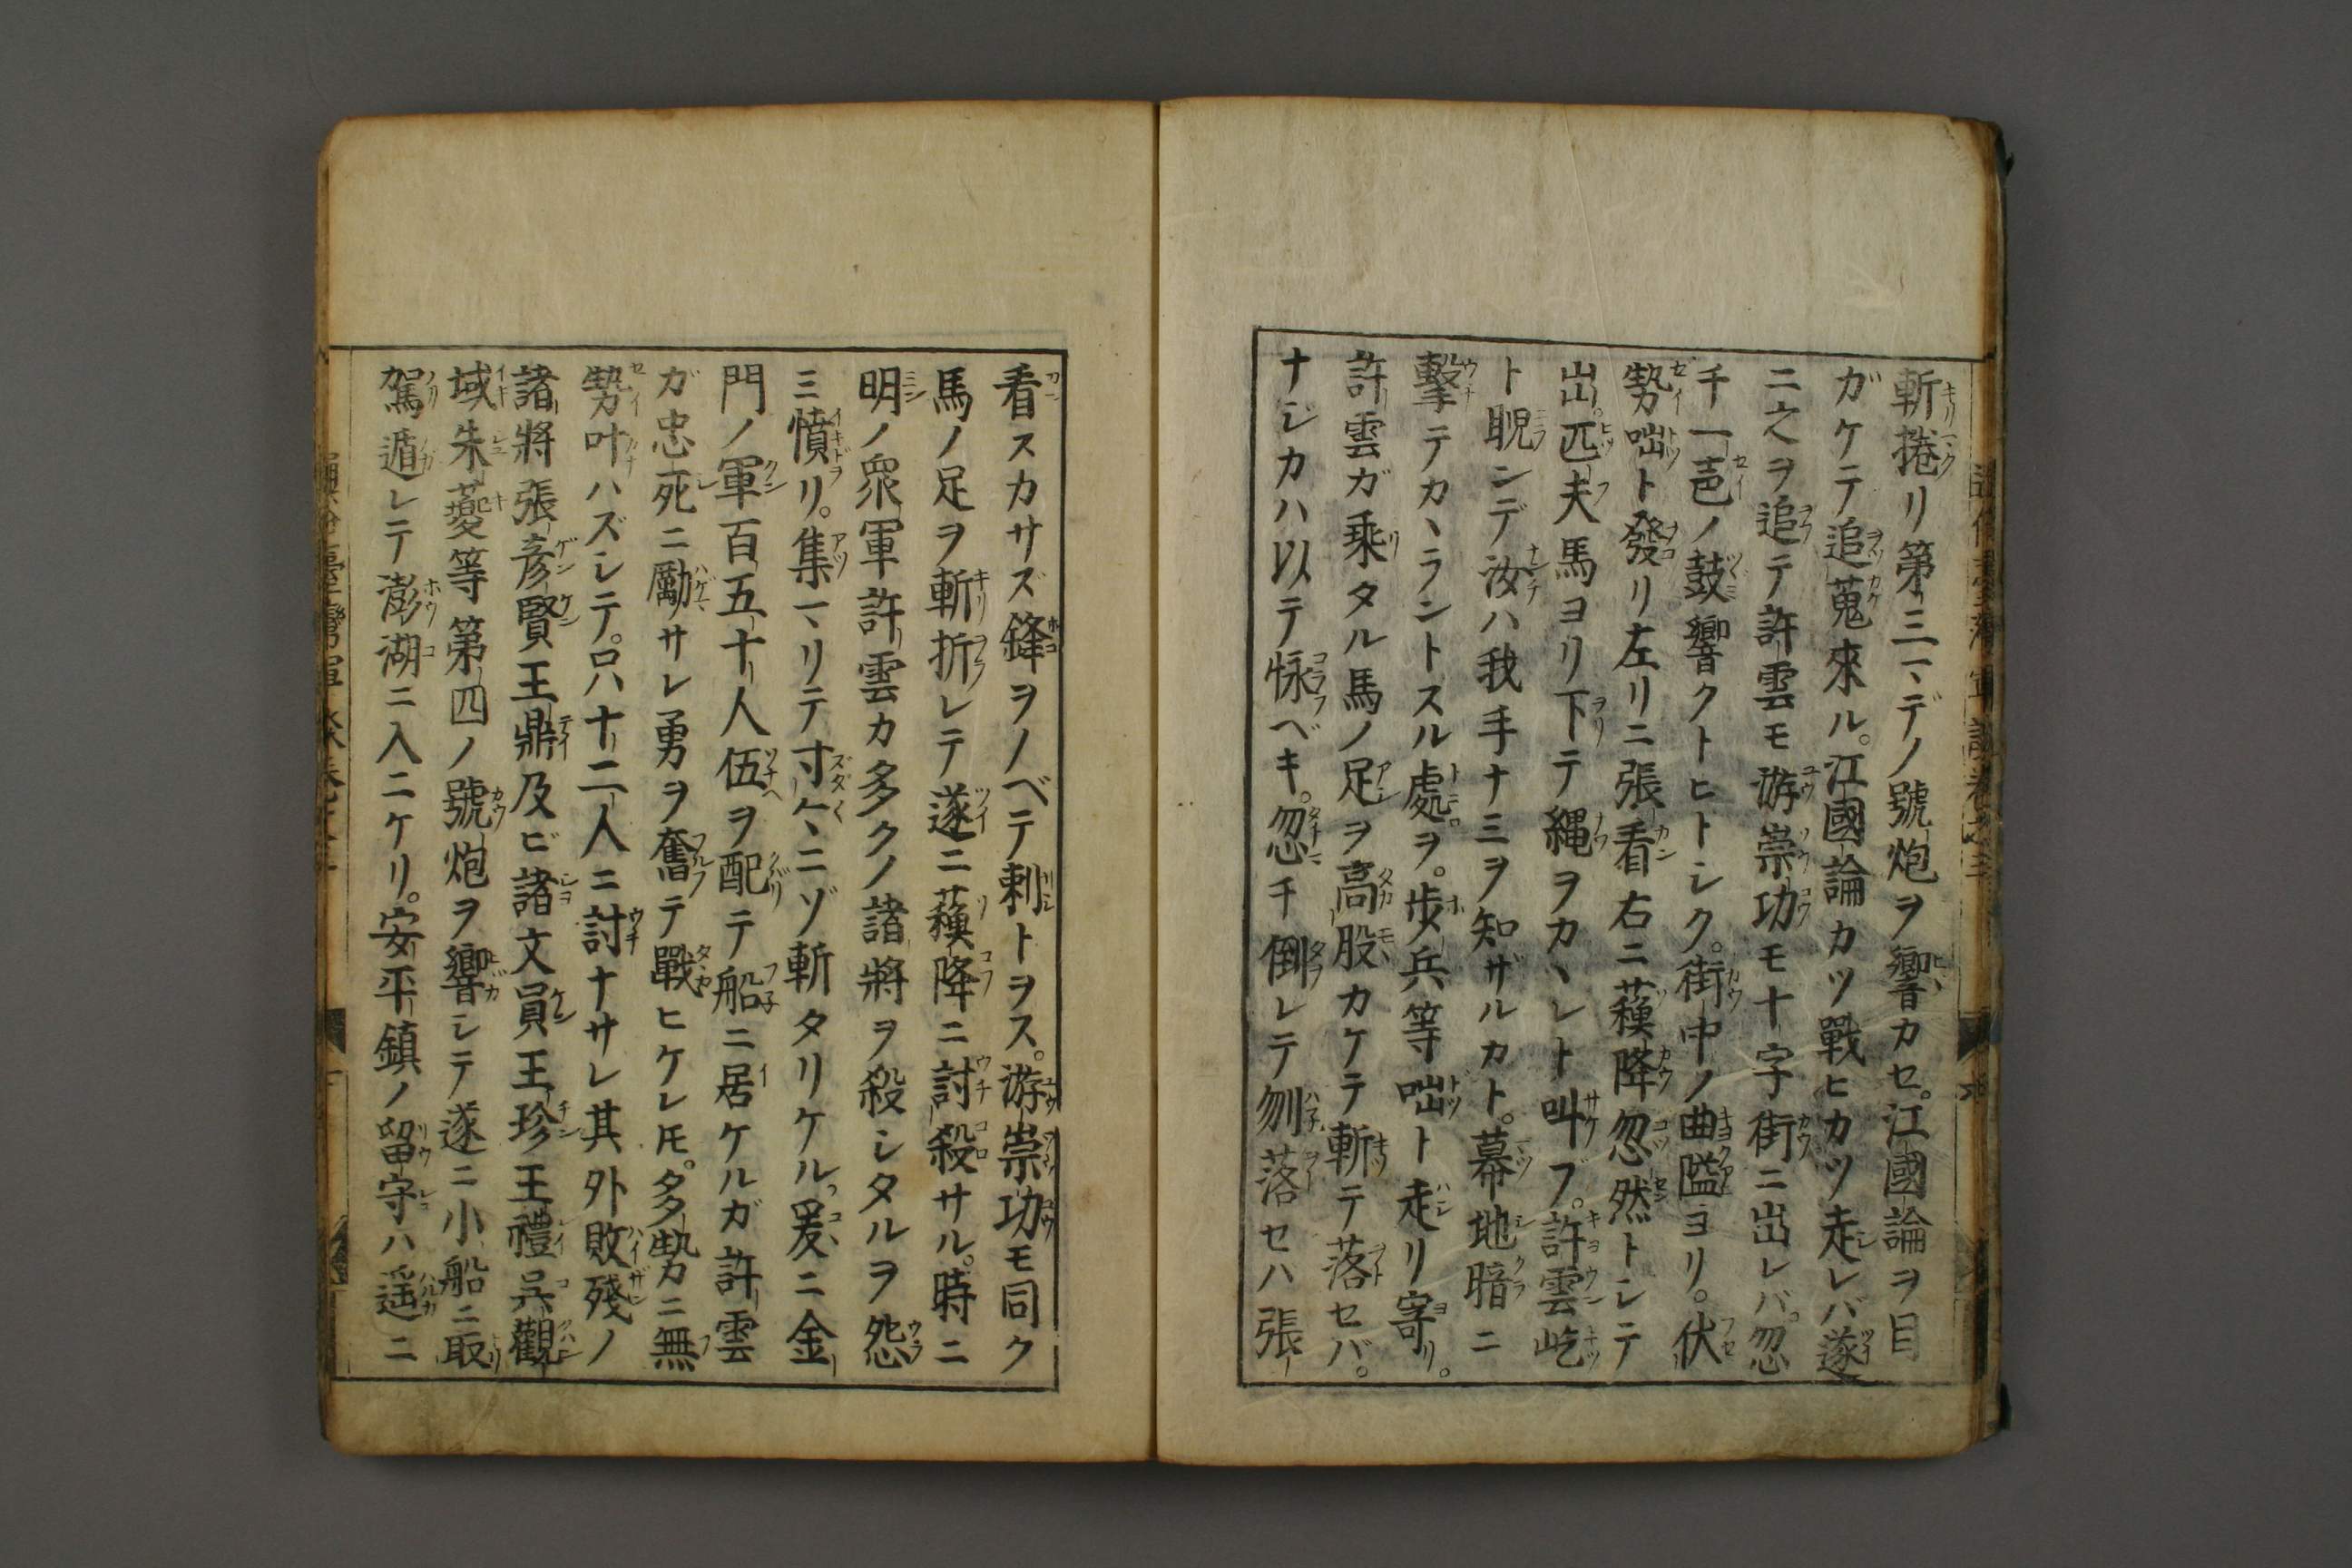 斬捲リ第三マデノ號炮ヲ響カセ。江國論ヲ目
ガケテ追蒐來ル。江國論カツ戰ヒカツ走レバ遂
ニ之ヲ追テ許雲モ游崇功モ十字街ニ出レバ。忽
チ一声ノ鼓響クトヒトシク。街中ノ曲隘ヨリ。伏
勢咄ト發リ左リニ張看右ニ蘓降忽然トシテ
出。匹夫馬ヨリ下テ縄ヲカヽレト叫ブ。許雲屹
ト睨ンデ汝ハ我手ナミヲ知ザルカト。幕地暗ニ
擊テカヽラントスル處ヲ。歩兵等咄ト走リ寄リ。
許雲ガ乘タル馬ノ足ヲ高股カケテ斬テ落セバ。
ナジカハ以テ怺ベキ。忽チ倒レテ刎落セハ張
看スカサズ鋒ヲノベテ刺トヲス。游崇功モ同ク
馬ノ足ヲ斬折レテ遂ニ蘓降ニ討殺サル。時ニ
明ノ衆軍許雲カ多クノ諸將ヲ殺シタルヲ怨
ミ憤リ。集マリテ寸々ニゾ斬タリケル。爰ニ金
門ノ軍百五十人伍ヲ配テ船ニ居ケルガ許雲
ガ忠死ニ勵サレ勇ヲ奮テ戰ヒケレ𪜈。多勢ニ無
勢叶ハズシテ。只十二人ニ討ナサレ其外敗殘ノ
諸將張彦賢王鼎及ビ諸文員王珍王禮呉觀
域朱夔等第四ノ號炮ヲ響シテ遂ニ小船ニ取
駕遁レテ澎湖ニ入ニケリ。安平鎮ノ留守ハ遥ニ